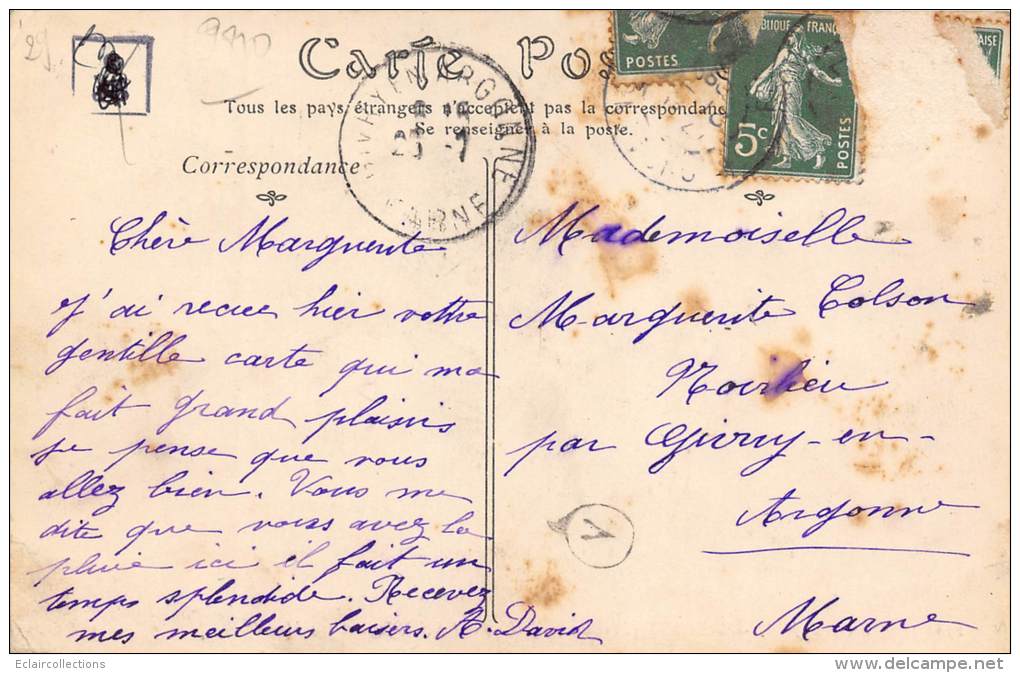 29
Carte Pos
Tous les pays étrangers n'acceptent pas la correspondanc
Se renseigner à la poste.
Correspondance
GIVRY EN ARGONNE
MARNE
POSTES
RÉPUBLIQUE FRANÇ
5c
POSTES
AISE
Chère Marguerite
J'ai recue hier votre
gentille carte qui ma
fait grand plaisirs
je pense que vous
allez bien. Vous me
dite que vous avez la
pluie ici il fait un
temps splendide. Recevez
mes meilleurs baisers. A. David
Mademoiselle
Marguerite Colson
Noirlieu
par Givry-en-
Argonne
Marne
1
Eclaircollections
delcampe.net